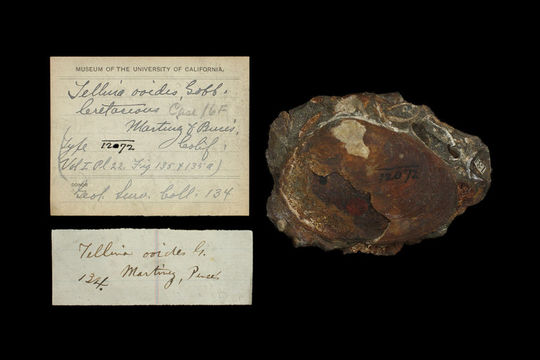 MUSEUM OF THE UNIVERSITY OF CALIFORNIA.
Tellina ooides, Gabb.
Cretacious Case 16F
Martinez & Benicia,
Type 12072 Calif.
Vol I. Pl 22. Fig 135 & 135a)
DONOR
Geol. Surv. Coll. 134
Tellina ooides G.
134. Martinez,
12072